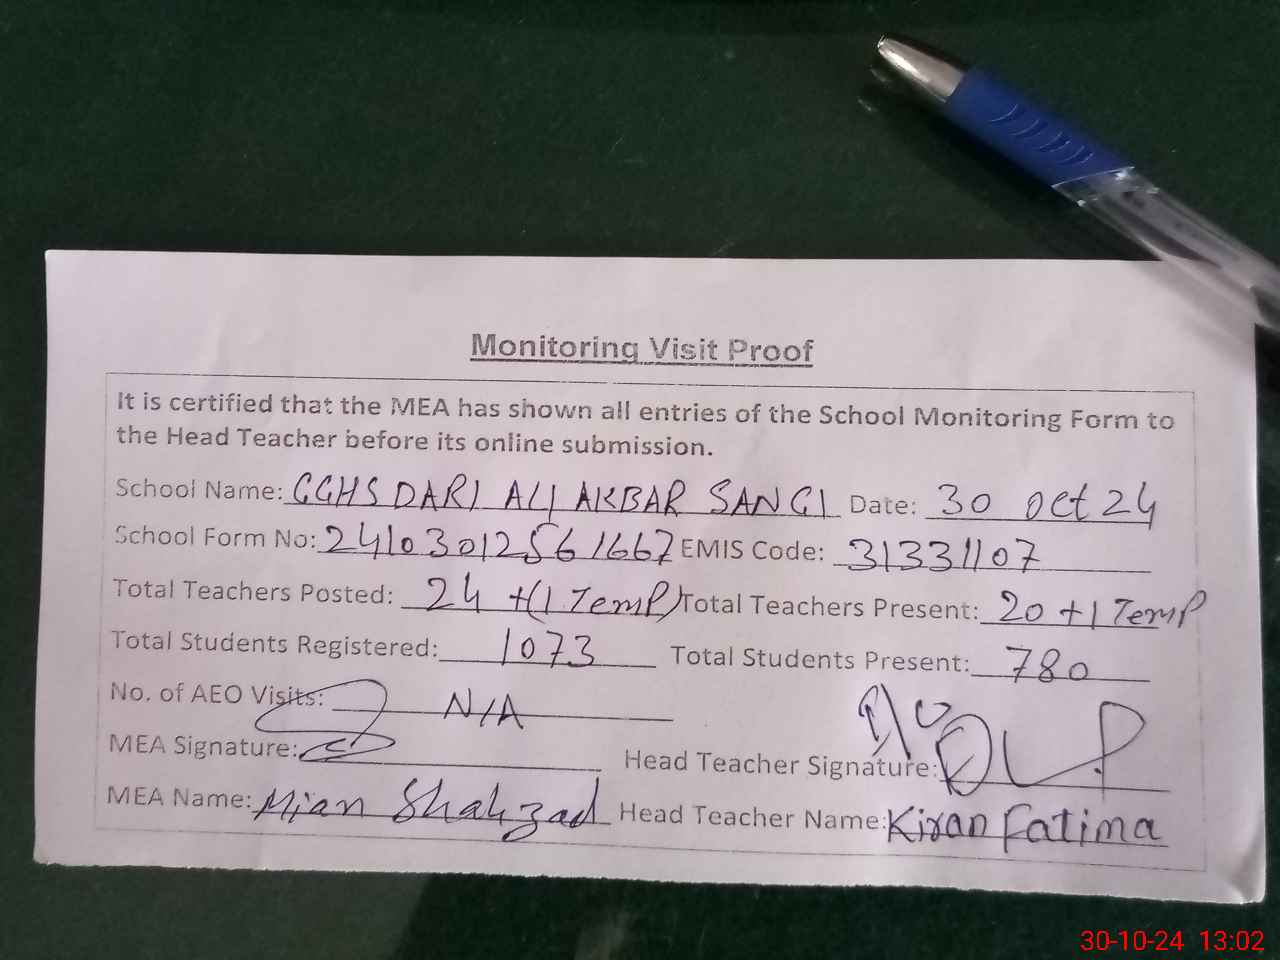 Monitoring Visit Proof
It is certified that the MEA has shown all entries of the School Monitoring Form to
the Head Teacher before its online submission.
School Name: GGHS DARI ALI AKBAR SANGI Date: 30 oct 24
School Form No: 2410301256 1667 EMIS Code: 31331107
Total Teachers Posted: 24 + (1 Temp) Total Teachers Present: 20 + 1 Temp
Total Students Registered: 1073 Total Students Present: 780
No. of AEO Visits: N/A
MEA Signature: Head Teacher Signature:
MEA Name: Mian Shahzad Head Teacher Name: Kiran Fatima
30-10-24 13:02